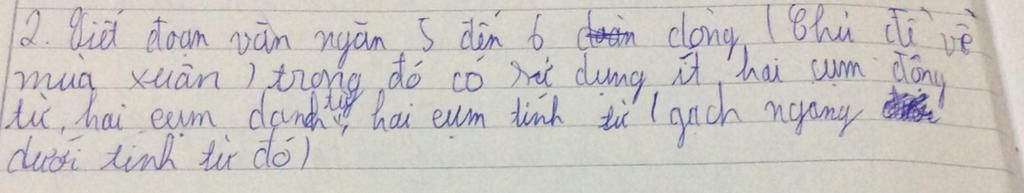 2. Viết đoạn văn ngắn 5 đến 6 dòng (Chủ đề về
mùa xuân) trong đó có sử dụng ít hai cụm động
từ, hai cụm danh từ, hai cụm tính từ (gạch ngang
dưới tính từ đó)